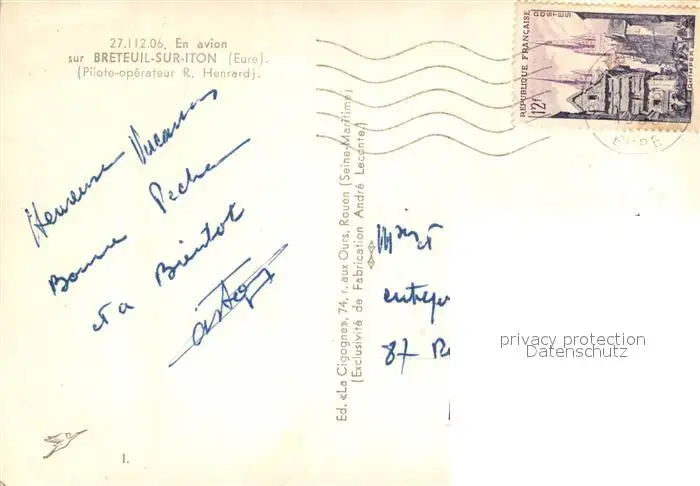 27.112.06. En avion
sur BRETEUIL-SUR-ITON (Eure).
(Pilote-opérateur R. Henrard).
Heureuse Vacances
Bonne Peche
et a Bientot
1.
Ed. «La Cigogne», 74, r. aux Ours, Rouen (Seine-Maritime)
(Exclusivité de Fabrication André Leconte)
REPUBLIQUE FRANÇAISE
POSTES
12F
QUIMPER
EURE
et
87
privacy protection
Datenschutz